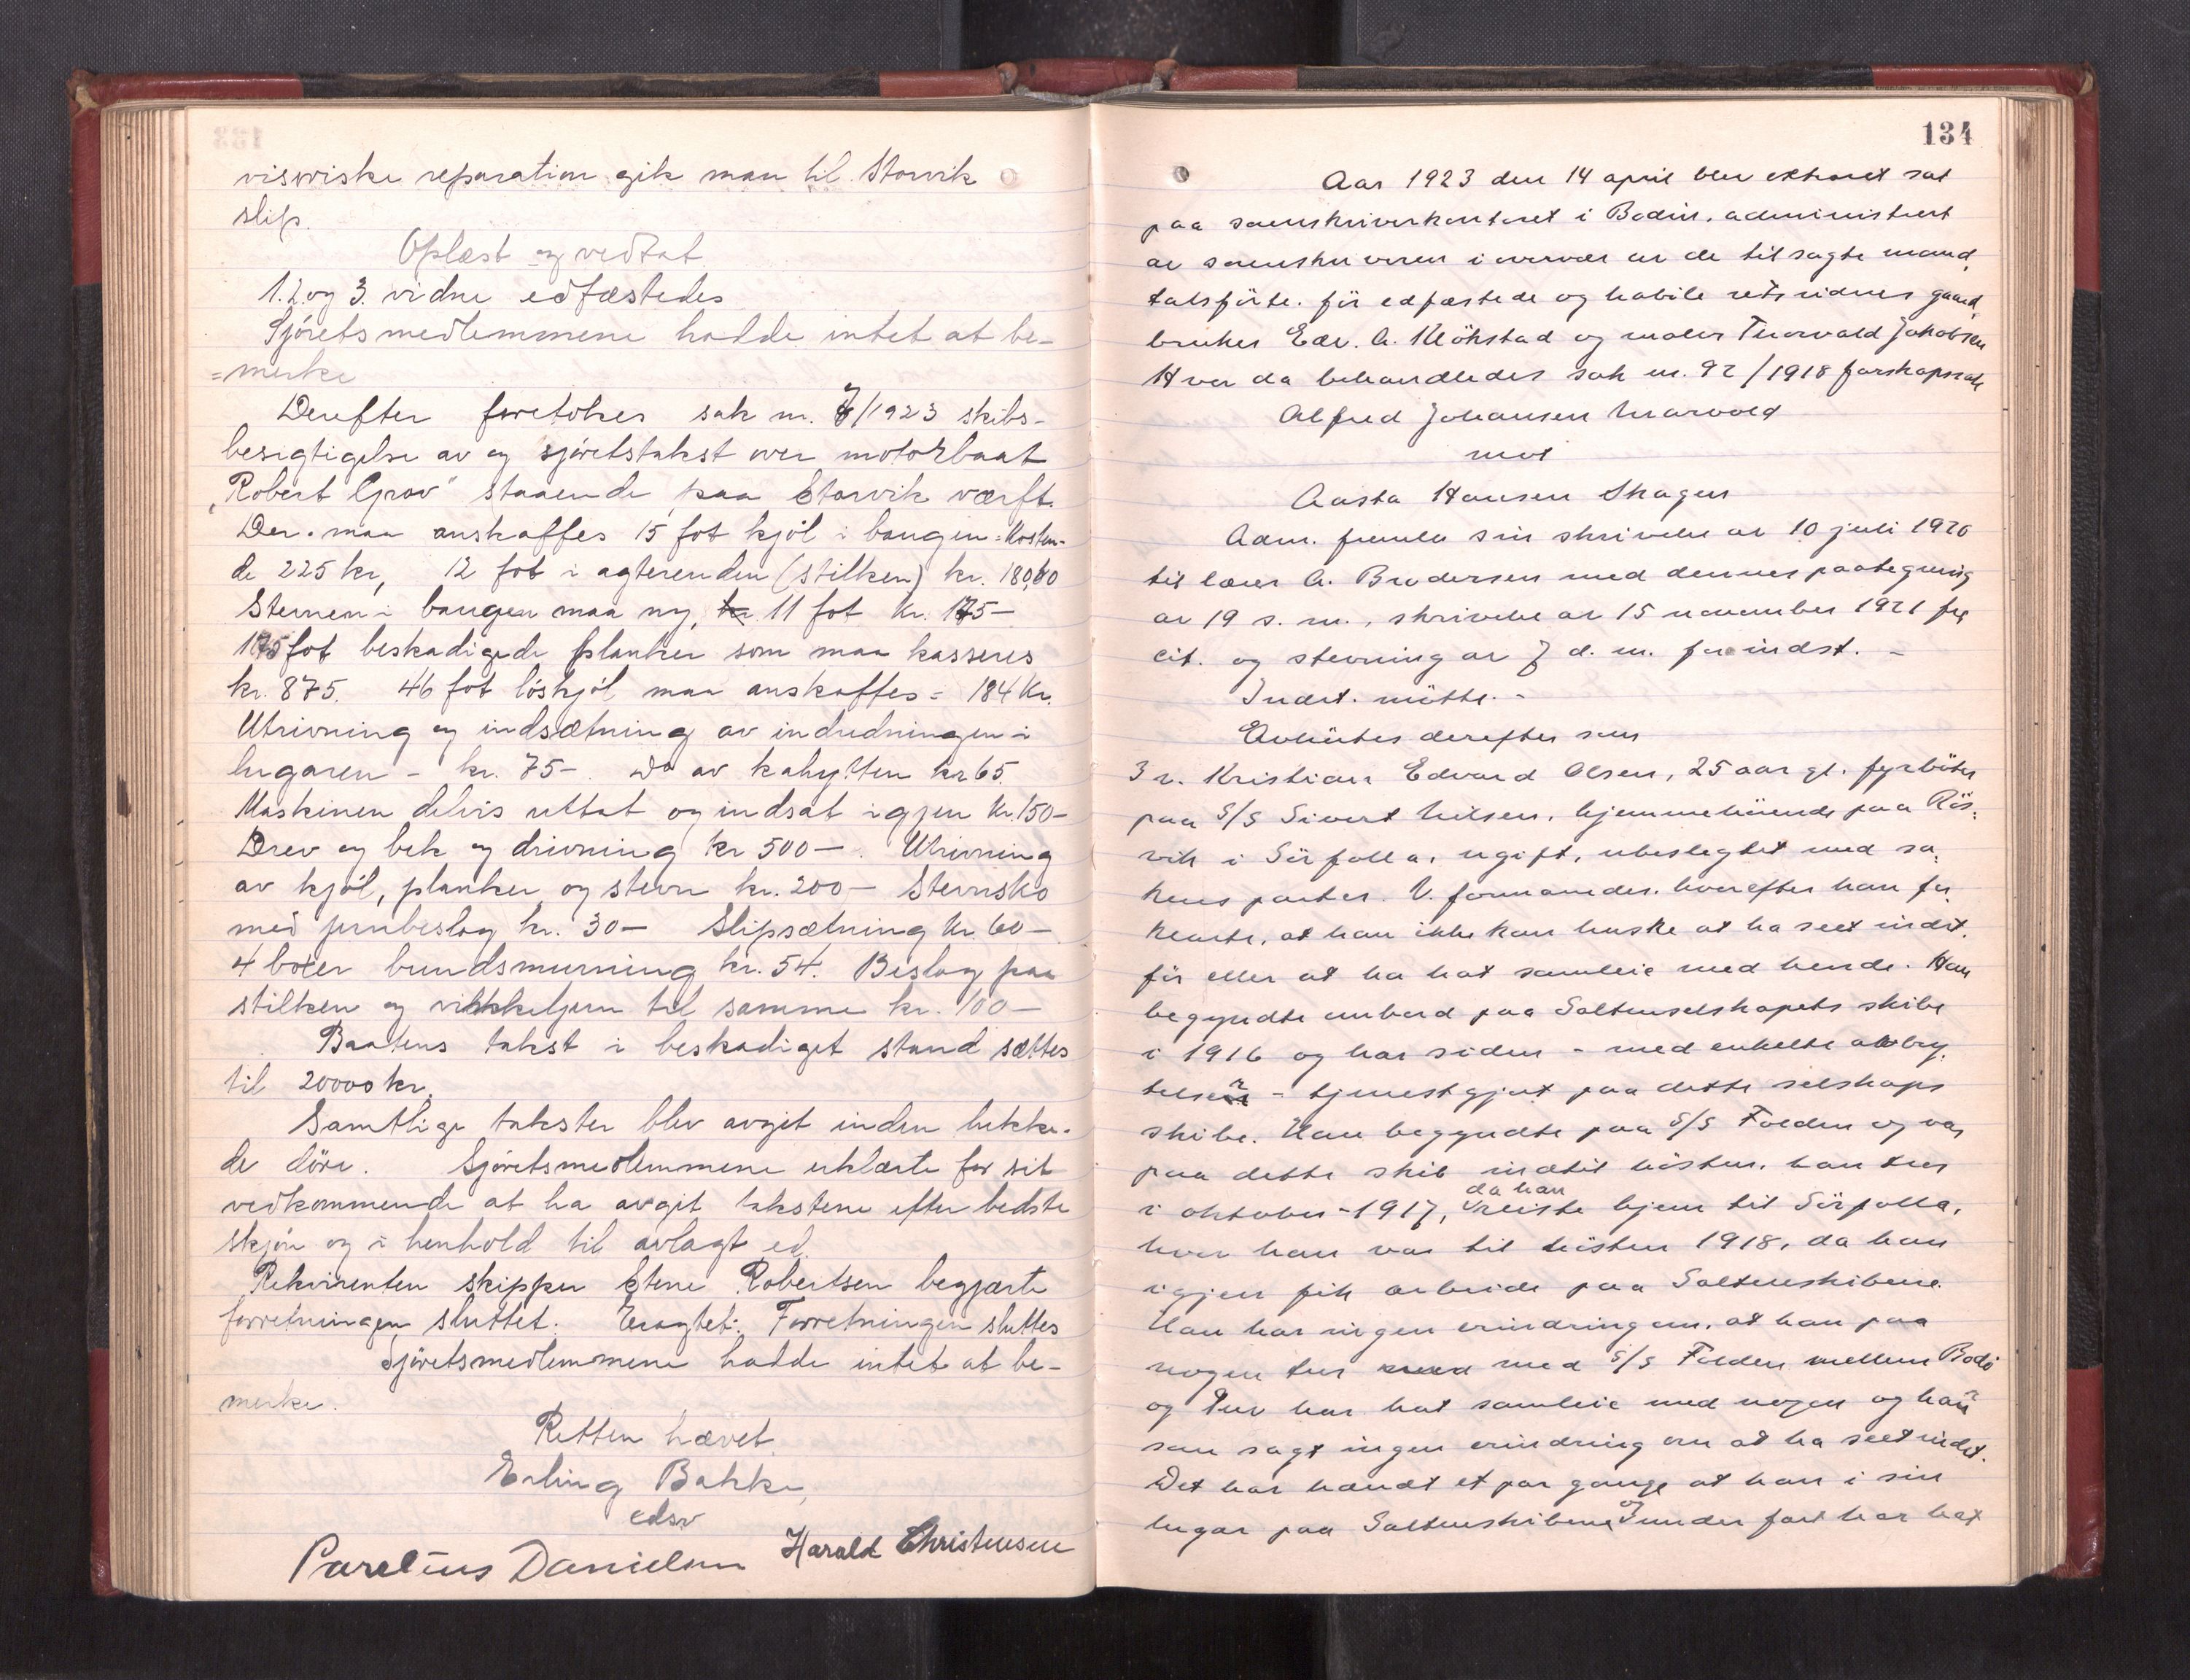 visoriske reparation gik man til Storvik
slip.
Oplæst og vedtat
1. 2. og 3. vidne edfæstedes
Sjöretsmedlemmene hadde intet at be-
=merke
Derefter foretokes sak nr. 7/1923 skibs-
besigtigelse av og sjöretstakst over motorbaat
"Robert Grov" staaende paa Storvik værft.
Der maa anskaffes 15 fot kjöl i baugen = kosten-
de 225 kr, 12 fot i agterenden (stilken) kr. 180,00
Stevnen i baugen maa ny, 11 fot kr. 175-
175 fot beskadigede planker som maa kasseres
kr. 875. 46 fot löskjöl maa anskaffes = 184 kr.
Utrivning og indsætning av indredningen i
lugaren - kr. 75-. Do av kahytten kr 65.
Maskinen delvis uttat og indsat igjen kr. 150-
Drev og bek og drivning kr 500-. Utrivning
av kjöl, planker og stevn kr. 200- Stevnsko
med jernbeslag kr. 30- Slipsætning kr. 60-
4 boxer bundsmurning kr. 54. Beslag paa
stilken og vinkkeljern til samme kr. 100-
Baatens takst i beskadiget stand sættes
til 20000 kr.
Samtlige takster blev avgit inden lukke-
de döre. Sjöretsmedlemmene erklærte for sit
vedkommende at ha avgit takstene efter bedste
skjön og i henhold til avlagt ed.
Rekvirenten skipper Stene Robertsen begjærte
forretningen sluttet. Eragtet: Forretningen sluttes
Sjöretsmedlemmene hadde intet at be-
merke.
Retten hævet.
Erling Bakke,
edsv
Parelius Danielsen Harald Christensen
134
Aar 1923 den 14 april blev ekstraret sat
paa sorenskriverkontoret i Bodin, administrert
av sorenskriveren i overvær av de tilsagte mand
talsförte, för edfæstede og habile retsvidner gaard
bruker Edv. A. Klökstad og maler Thorvald Jakobsen
Hvor da behandledes sak nr. 92/1918 farskapssak
Alfred Johansen Marvold
mot
Aasta Hansen Skagen
Adm. fremla sin skrivelse av 10 juli 1920
til lærer A. Brodersen med dennes paategning
av 19 s. m., skrivelse av 15 november 1921 fra
cit. og stevning av 7 d. m. for indst. -
Indst. mötte. -
Avhörtes derefter som
3 v. Kristian Edvard Olsen, 25 aar gl. fyrböter
paa S/S Sivert Nilsen, hjemmehörende paa Rös-
vik i Sörfolla, ugift, ubeslegtet med sa-
kens parter. V. formanedes, hvorefter han for-
klarte, at han ikke kan huske at ha seet indst.
för eller at ha hat samleie med hende. Han
begyndte ombord paa Saltenselskapets skibe
i 1916 og har siden - med enkelte avbry-
telser - tjenestgjort paa dette selskaps
skibe. Han begyndte paa S/S Folden og var
paa dette skib indtil hösten, han tror
i oktober 1917, da han reiste hjem til Sörfolla,
hvor han var til hösten 1918, da han
igjen fik arbeide paa Saltenskibene.
Han har ingen erindring om, at han paa
nogen tur med S/S Folden mellem Bodö
og Tuv har hat samleie med nogen og har
som sagt ingen erindring om at ha seet indst.
Det har hændt et par gange at han i sin
lugar paa Saltenskibene og under fart har hat